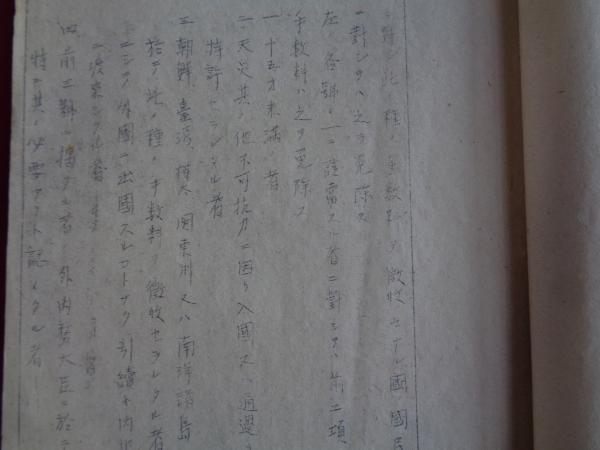 對シ此ノ種ノ手数料ヲ徴收セザル國ノ國民
ニ對シテハ之ヲ免除ス
左ノ各號ノ一ニ該當スル者ニ對シテハ前二項ノ
手数料ハ之ヲ免除ス
一 十五才未満ノ者
二 天災其ノ他不可抗力ニ因リ入國又ハ通過ヲ
特許セラレタル者
三 朝鮮、臺湾、樺太、関東州又ハ南洋諸島ニ
於テ此ノ種ノ手数料ヲ徴收セラレタル者
ニシテ外國ニ出國スルコトナク引續キ内地
ニ渡来シタル者
四 前三號ニ掲グル者ノ外内務大臣ニ於テ
特ニ其ノ必要アリト認メタル者